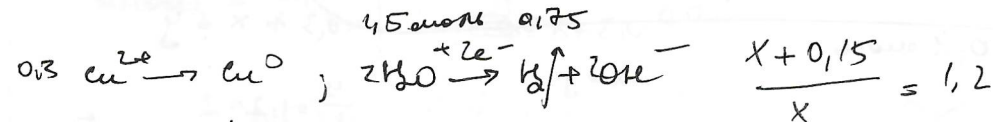 1,5 моль 0,75
0,3 Cu²⁺ → Cu⁰ ; 2H₂O +2e⁻ → H₂↑ + 2OH⁻ (x + 0,15)/x = 1,2